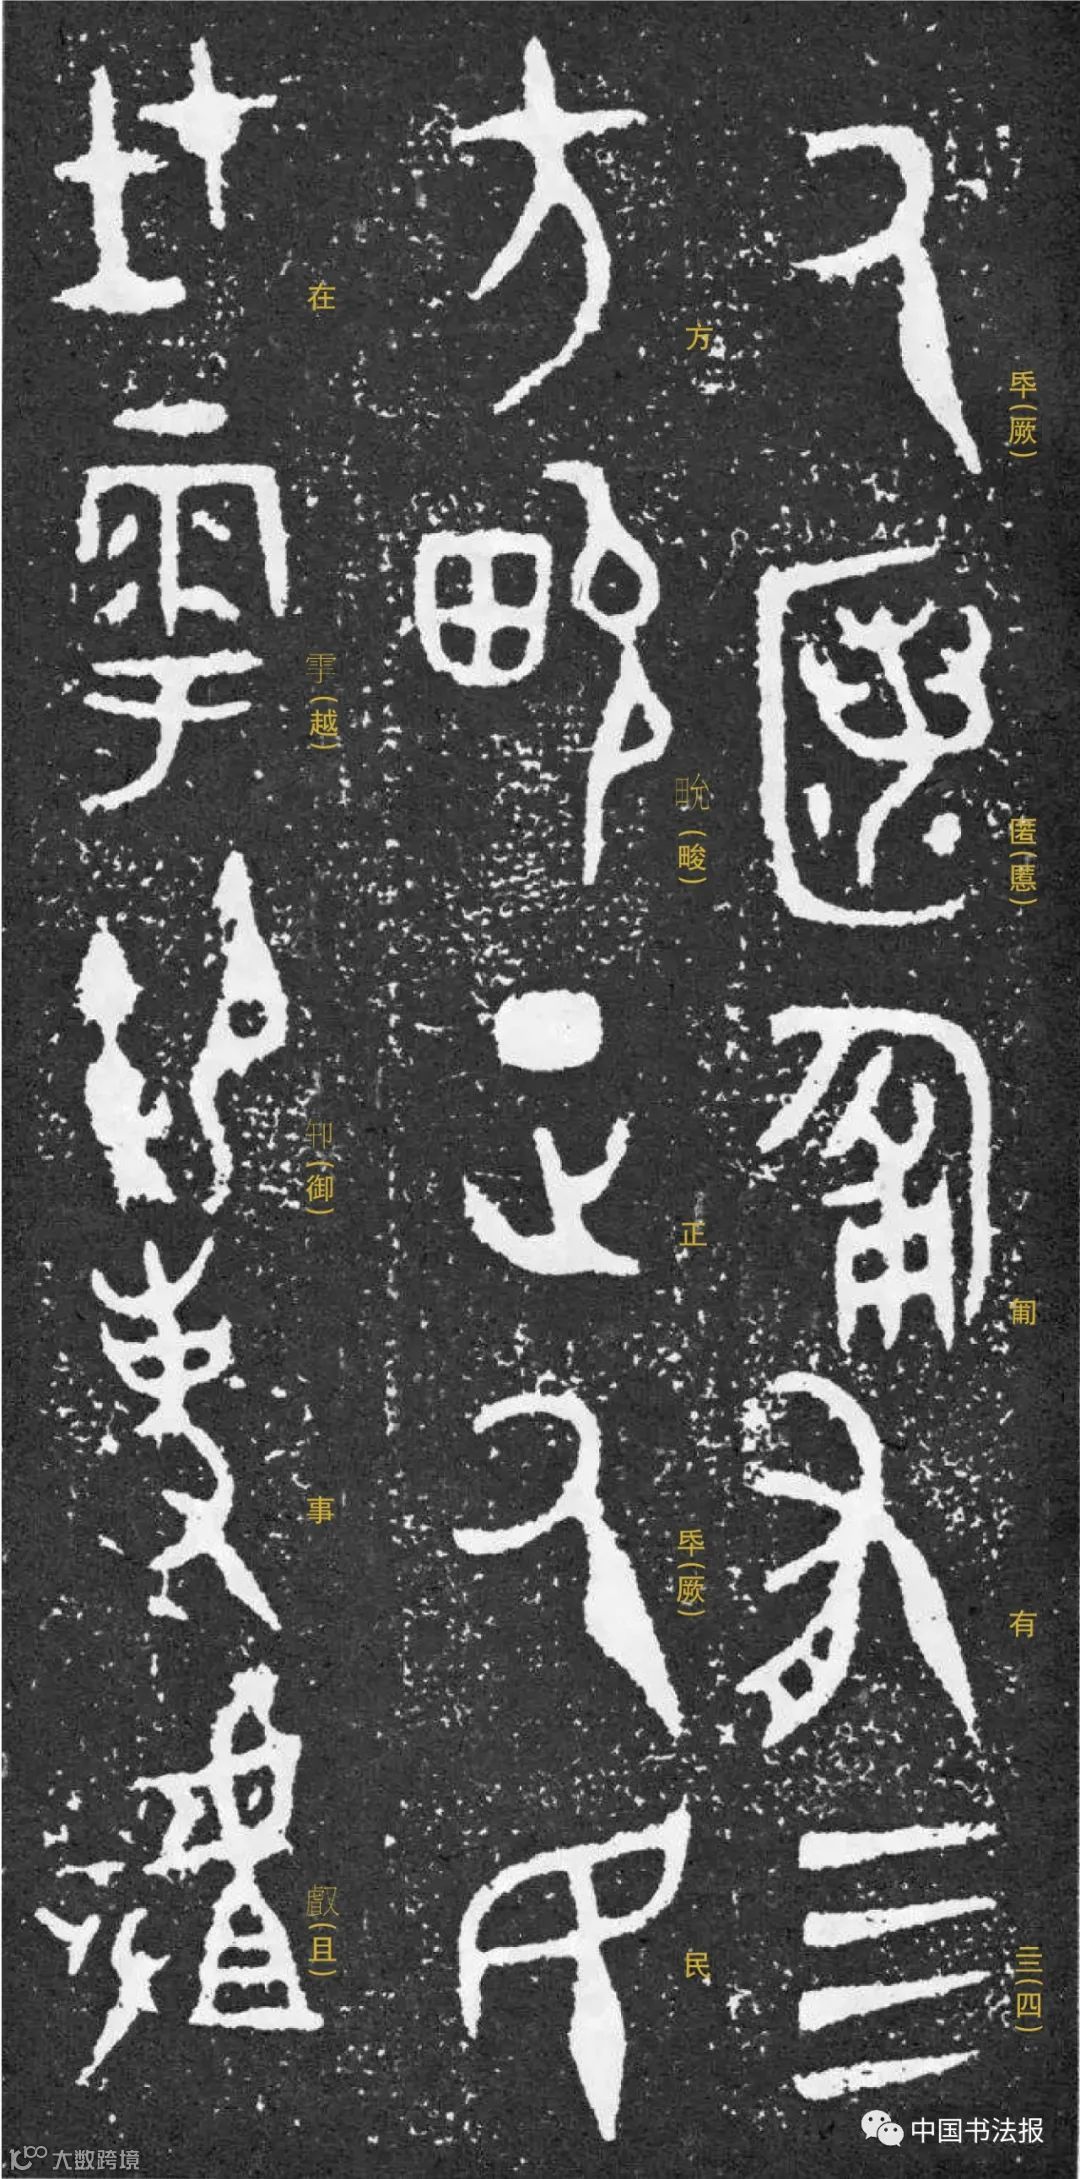 氒(厥)匿(慝)匍有亖(四)
方畍(畯)正氒(厥)民
在雩(越)卸(御)事𠭯(且)
中国书法报
大数跨境